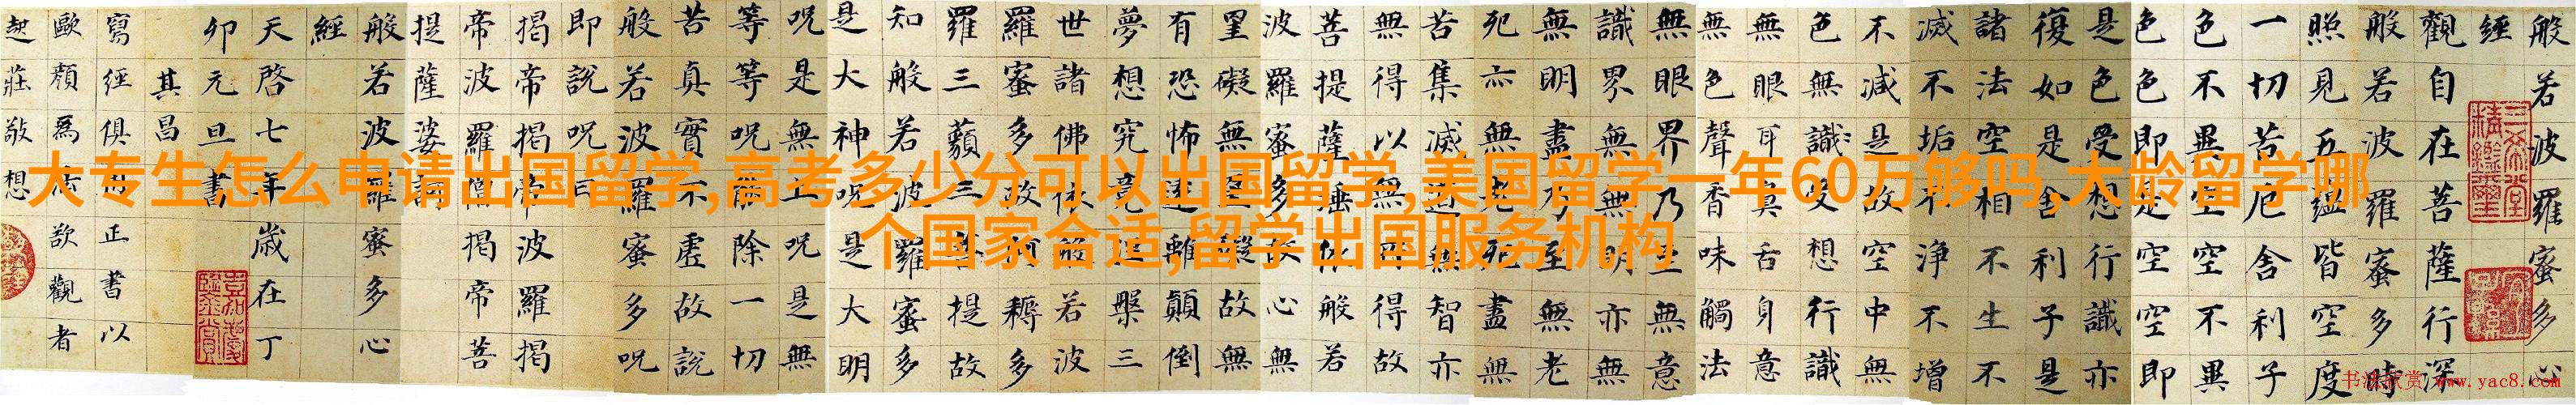 般若波羅蜜多心
經
觀自在菩薩行深
般若波羅蜜多時
照見五蘊皆空度
一切苦厄舍利子
色不異空空不異
色色即是空空即
是色受想行識亦
復如是舍利子是
諸法空相不生不
滅不垢不淨不增
不減是故空中無
色無識受想行識
無眼耳鼻舌身意
無色聲香味觸法
無眼界乃至無意
識界無無明亦無
無明盡乃至無老
死亦無老死盡無
苦集滅道無智亦
無得以無所得故
菩提薩埵依般若
波羅蜜多故心無
罣礙無罣礙故無
有恐怖遠離顛倒
夢想究竟涅槃三
世諸佛依般若波
羅蜜多故阿耨多
羅三藐三菩提故
知般若波羅蜜多
是大神呪是大明
呪是無上呪是無
等等呪能除一切
苦真實不虛故說
般若波羅蜜多呪
即說呪曰
揭帝揭帝波羅揭
帝波羅僧揭帝菩
提薩婆訶
般若波羅蜜多心
經
天啓七年歲在丁
卯元旦書
其昌
寫經俱用正書以
歐顏為法欲觀者
起莊敬想
大专生怎么申请出国留学,高考多少分可以出国留学,美国留学一年60万够吗,大龄留学哪
个国家合适,留学出国服务机构
书法欣赏 www.yac8.com